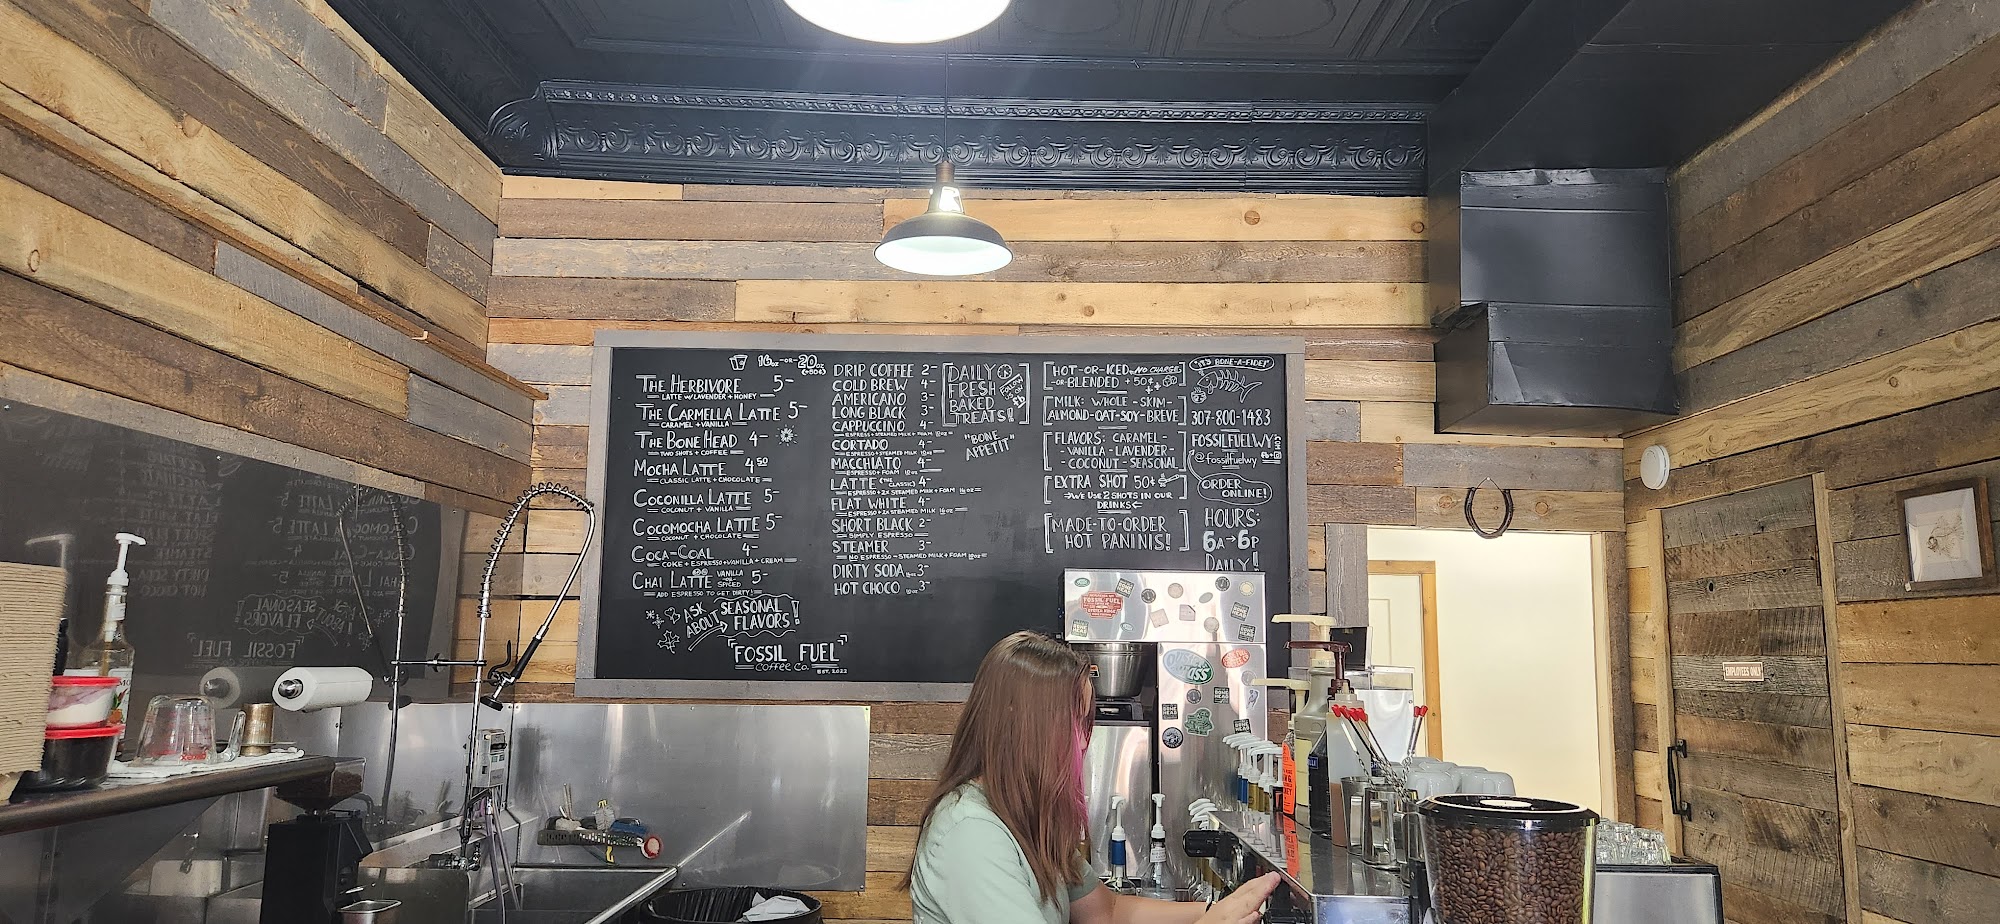 16oz -OR- 20oz
(+50¢)
THE HERBIVORE 5-
LATTE W/LAVENDER + HONEY
THE CARMELLA LATTE 5-
CARAMEL + VANILLA
THE BONE HEAD 4-
TWO SHOTS + COFFEE
MOCHA LATTE 4.50
CLASSIC LATTE + CHOCOLATE
COCONILLA LATTE 5-
COCONUT + VANILLA
COCOMOCHA LATTE 5-
COCONUT + CHOCOLATE
COCA-COAL 4-
COKE + ESPRESSO + VANILLA + CREAM
CHAI LATTE VANILLA -OR- SPICED 5-
ADD ESPRESSO TO GET DIRTY!
ASK ABOUT SEASONAL FLAVORS!
"FOSSIL FUEL"
COFFEE CO.
EST. 2022
DRIP COFFEE 2-
COLD BREW 4-
AMERICANO 3-
LONG BLACK 3-
CAPPUCCINO 4-
ESPRESSO + STEAMED MILK + FOAM 10oz
CORTADO 4-
ESPRESSO + STEAMED MILK 10oz
MACCHIATO 4-
ESPRESSO + FOAM 10oz
LATTE (THE CLASSIC) 4-
ESPRESSO + 2X STEAMED MILK + FOAM 16oz
FLAT WHITE 4-
ESPRESSO + 2X STEAMED MILK 16oz
SHORT BLACK 2-
SIMPLY ESPRESSO
STEAMER 3-
NO ESPRESSO - STEAMED MILK + FOAM 10oz
DIRTY SODA 16oz 3-
HOT CHOCO 10oz 3-
DAILY
FRESH
BAKED
TREATS!
FOLLOW US ON FB
"BONE
APPETIT"
HOT-OR-ICED NO CHARGE
-OR-BLENDED +50¢
MILK: WHOLE - SKIM -
ALMOND-OAT-SOY-BREVE
FLAVORS: CARAMEL -
- VANILLA - LAVENDER -
- COCONUT - SEASONAL
EXTRA SHOT 50¢
WE USE 2 SHOTS IN OUR
DRINKS
MADE-TO-ORDER
HOT PANINIS!
"IT'S BONE-A-FIDE!"
307-800-1483
FOSSILFUELWY.COM
@fossilfuelwy
ORDER
ONLINE!
HOURS:
6A→6P
DAILY!
FOSSIL FUEL
BONE HEAD
EMPLOYEES ONLY